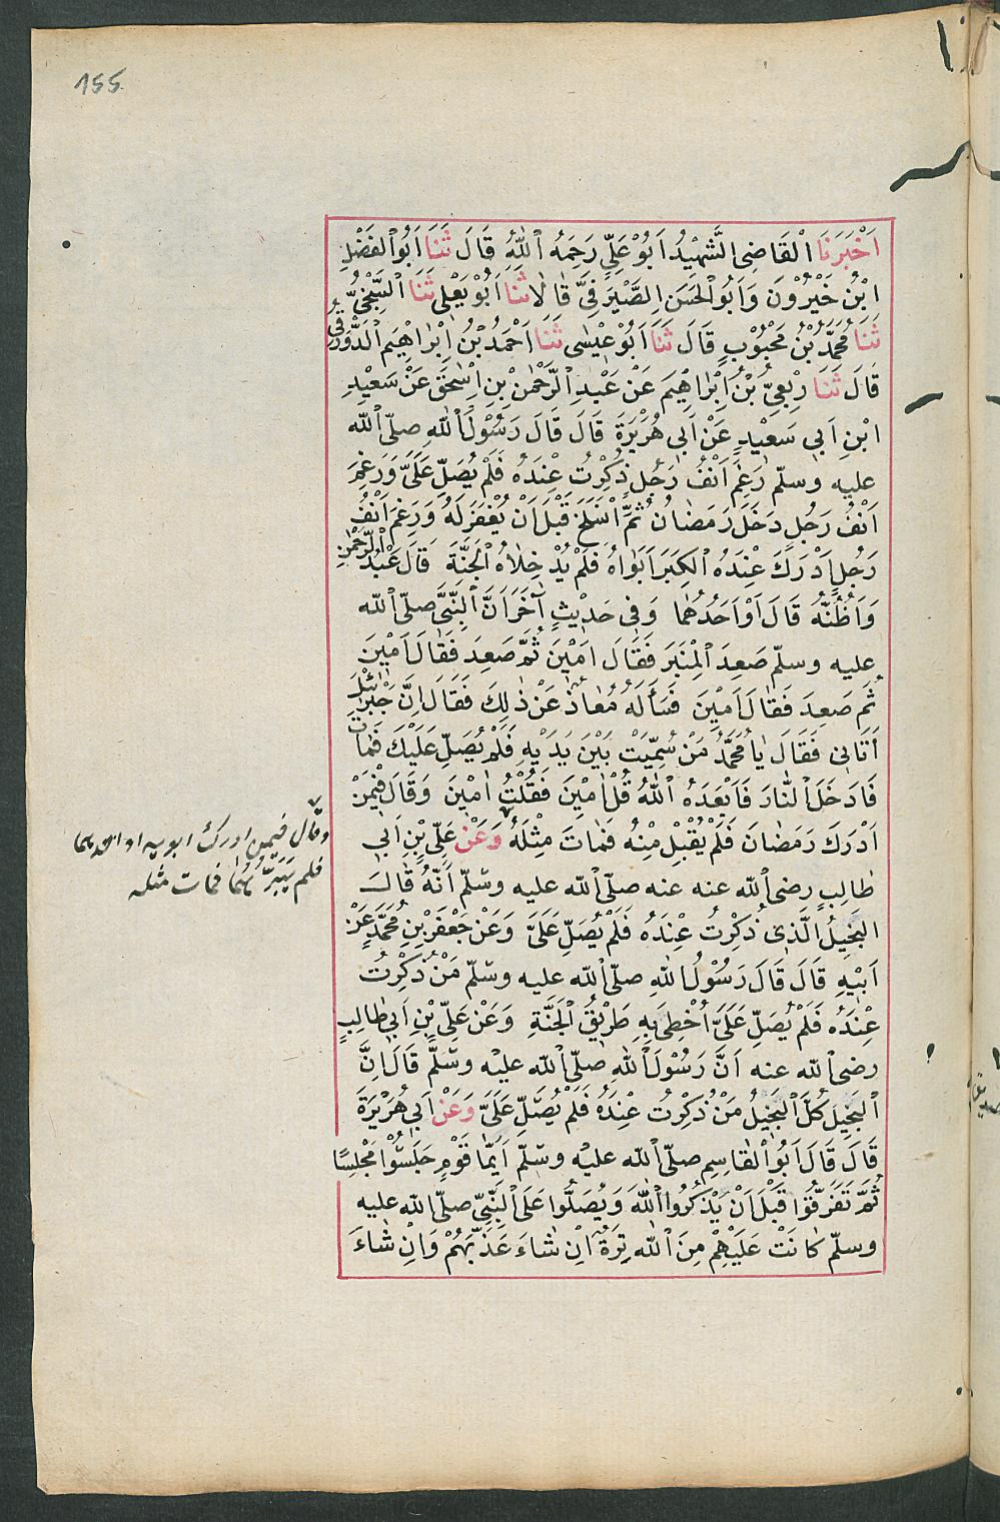 155
اَخْبَرَنَا الْقَاضِى الشَّهِيْدُ اَبُوْ عَلِيٍّ رَحِمَهُ اللّٰهُ قَالَ ثَنَا اَبُو الْفَضْلِ
ابْنُ خَيْرُوْنَ وَاَبُو الْحَسَنِ الصَّيْرَفِىُّ قَالَا ثَنَا اَبُوْ يَعْلٰى ثَنَا السِّنْجِىُّ
ثَنَا مُحَمَّدُ بْنُ مَحْبُوْبٍ قَالَ ثَنَا اَبُوْ عِيْسٰى ثَنَا اَحْمَدُ بْنُ اِبْرَاهِيْمَ الدَّوْرَقِىُّ
قَالَ ثَنَا رِبْعِىُّ بْنُ اِبْرَاهِيْمَ عَنْ عَبْدِ الرَّحْمٰنِ بْنِ اِسْحٰقَ عَنْ سَعِيْدِ
ابْنِ اَبِى سَعِيْدٍ عَنْ اَبِى هُرَيْرَةَ قَالَ قَالَ رَسُوْلُ اللّٰهِ صلّى الله
عليه وسلّم رَغِمَ اَنْفُ رَجُلٍ ذُكِرْتُ عِنْدَهُ فَلَمْ يُصَلِّ عَلَىَّ وَرَغِمَ
اَنْفُ رَجُلٍ دَخَلَ رَمَضَانُ ثُمَّ انْسَلَخَ قَبْلَ اَنْ يُغْفَرَ لَهُ وَرَغِمَ اَنْفُ
رَجُلٍ اَدْرَكَ عِنْدَهُ الْكِبَرَ اَبَوَاهُ فَلَمْ يُدْخِلَاهُ الْجَنَّةَ قَالَ عَبْدُ الرَّحْمٰنِ
وَاَظُنُّهُ قَالَ اَوْ اَحَدُهُمَا وَفِى حَدِيْثٍ آخَرَ اَنَّ النَّبِىَّ صلّى الله
عليه وسلّم صَعِدَ الْمِنْبَرَ فَقَالَ اٰمِيْنَ ثُمَّ صَعِدَ فَقَالَ اٰمِيْنَ
ثُمَّ صَعِدَ فَقَالَ اٰمِيْنَ فَسَأَلَهُ مُعَاذٌ عَنْ ذٰلِكَ فَقَالَ اِنَّ جَبْرَائِيْلَ
اَتَانِى فَقَالَ يَا مُحَمَّدُ مَنْ سُمِّيْتَ بَيْنَ يَدَيْهِ فَلَمْ يُصَلِّ عَلَيْكَ فَمَاتَ
فَادَخَلَ النَّارَ فَاَبْعَدَهُ اللّٰهُ قُلْ اٰمِيْنَ فَقُلْتُ اٰمِيْنَ وَقَالَ فِيْمَنْ
اَدْرَكَ رَمَضَانَ فَلَمْ يُقْبَلْ مِنْهُ فَمَاتَ مِثْلَهُ وَعَنْ عَلِىِّ بْنِ اَبِى
طَالِبٍ رضى الله عنه عنه صلّى الله عليه وسلّم اَنَّهُ قَالَ
الْبَخِيْلُ الَّذِى ذُكِرْتُ عِنْدَهُ فَلَمْ يُصَلِّ عَلَىَّ وَعَنْ جَعْفَرِ بْنِ مُحَمَّدٍ عَنْ
اَبِيْهِ قَالَ قَالَ رَسُوْلُ اللّٰهِ صلّى الله عليه وسلّم مَنْ ذُكِرْتُ
عِنْدَهُ فَلَمْ يُصَلِّ عَلَىَّ اُخْطِىَ بِهِ طَرِيْقُ الْجَنَّةِ وَعَنْ عَلِىِّ بْنِ اَبِى طَالِبٍ
رضى الله عنه اَنَّ رَسُوْلَ اللّٰهِ صلّى الله عليه وسلّم قَالَ اِنَّ
الْبَخِيْلَ كُلَّ الْبَخِيْلِ مَنْ ذُكِرْتُ عِنْدَهُ فَلَمْ يُصَلِّ عَلَىَّ وَعَنْ اَبِى هُرَيْرَةَ
قَالَ قَالَ اَبُو الْقَاسِمِ صلّى الله عليه وسلّم اَيُّمَا قَوْمٍ جَلَسُوْا مَجْلِسًا
ثُمَّ تَفَرَّقُوْا قَبْلَ اَنْ يَذْكُرُوا اللّٰهَ وَيُصَلُّوا عَلَى النَّبِىِّ صلّى الله عليه
وسلّم كَانَتْ عَلَيْهِمْ مِنَ اللّٰهِ تِرَةٌ اِنْ شَاءَ عَذَّبَهُمْ وَاِنْ شَاءَ
وقال فيمن ادرك ابويه او احدهما
فلم يَبَرَّهُمَا فمات مثله